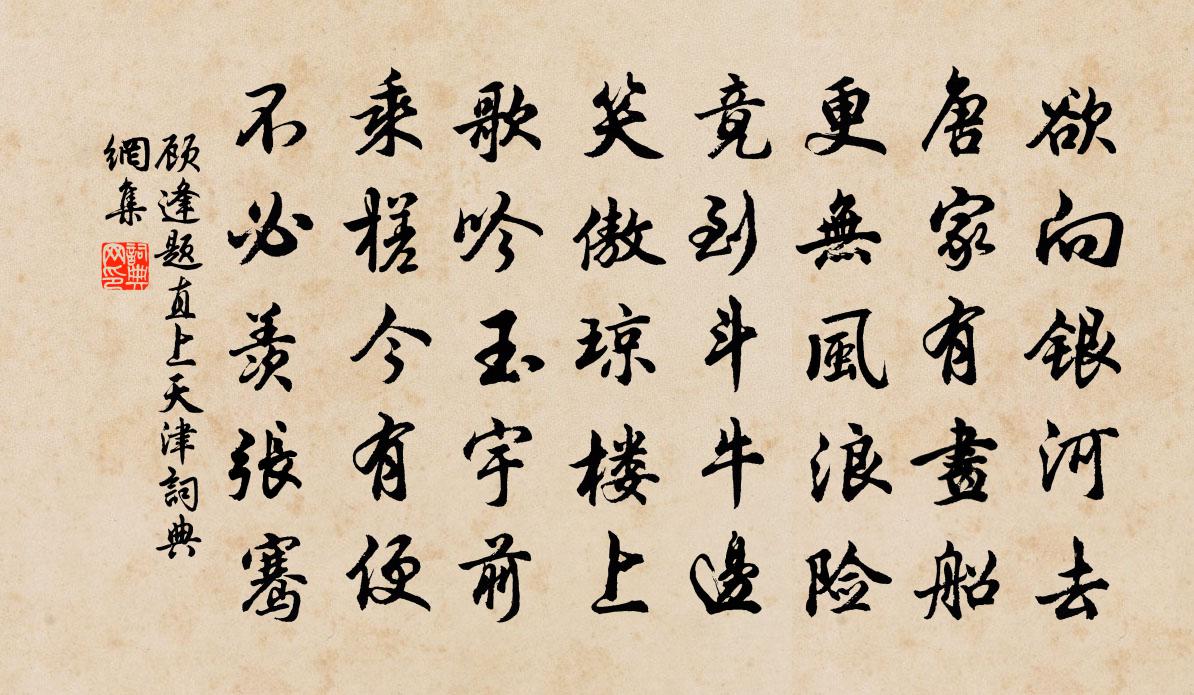 欲向银河去
唐家有畫船
更無風浪险
竟到斗牛邊
笑傲琼楼上
歌吟玉宇前
乘槎今有便
不必羨張骞
顾逢题直上天津詞典
網集
詞典
网印